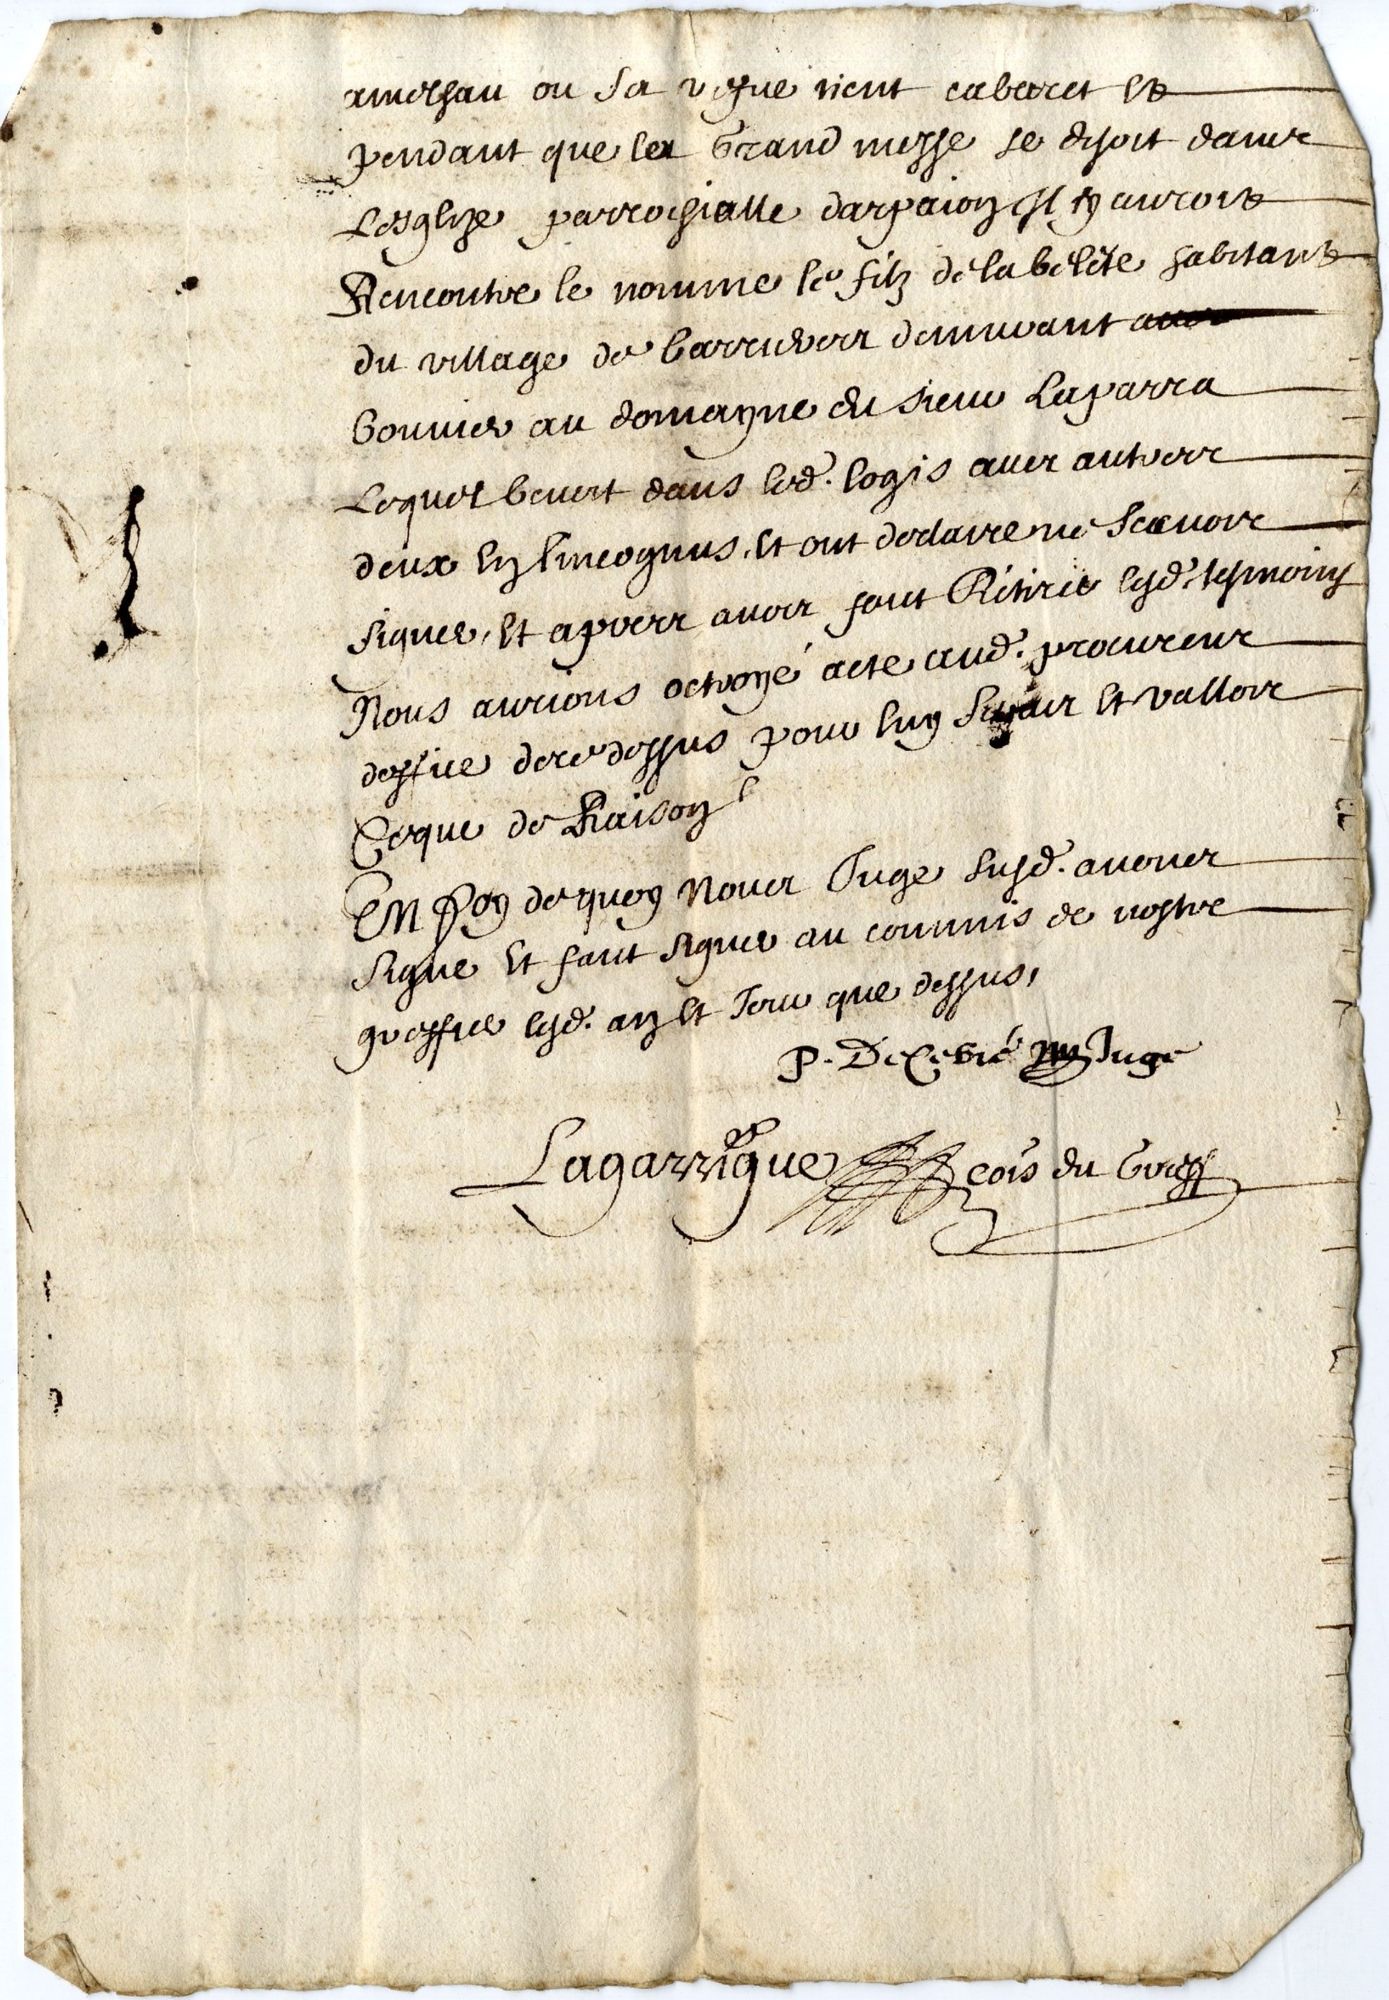 ou sa vefve tient cabaret et
pendant que la Grand messe se disoit dans
Lesglize parrochialle darpaion Il y auroit
Rencontre le nomme le filz de la belete habitant
du village de demurant
bouvier au domayne du sieur Laparra
Lequel beuvoit dans led. logis avec autres
deux a luy Incognus, et ont declaire ne scavoir
signer, et apres avoir faict Retirer lesd. tesmoins
Nous aurions octroyé acte aud. procureur
doffice de ce dessus pour luy servir et valloir
Ce que de Raison
EN Foy de quoy Nous Juge susd. avons
signe et faict signer au commis de nostre
greffier lesd. an et Jour que dessus,
P. Juge
Lagarrigue cois du Greff